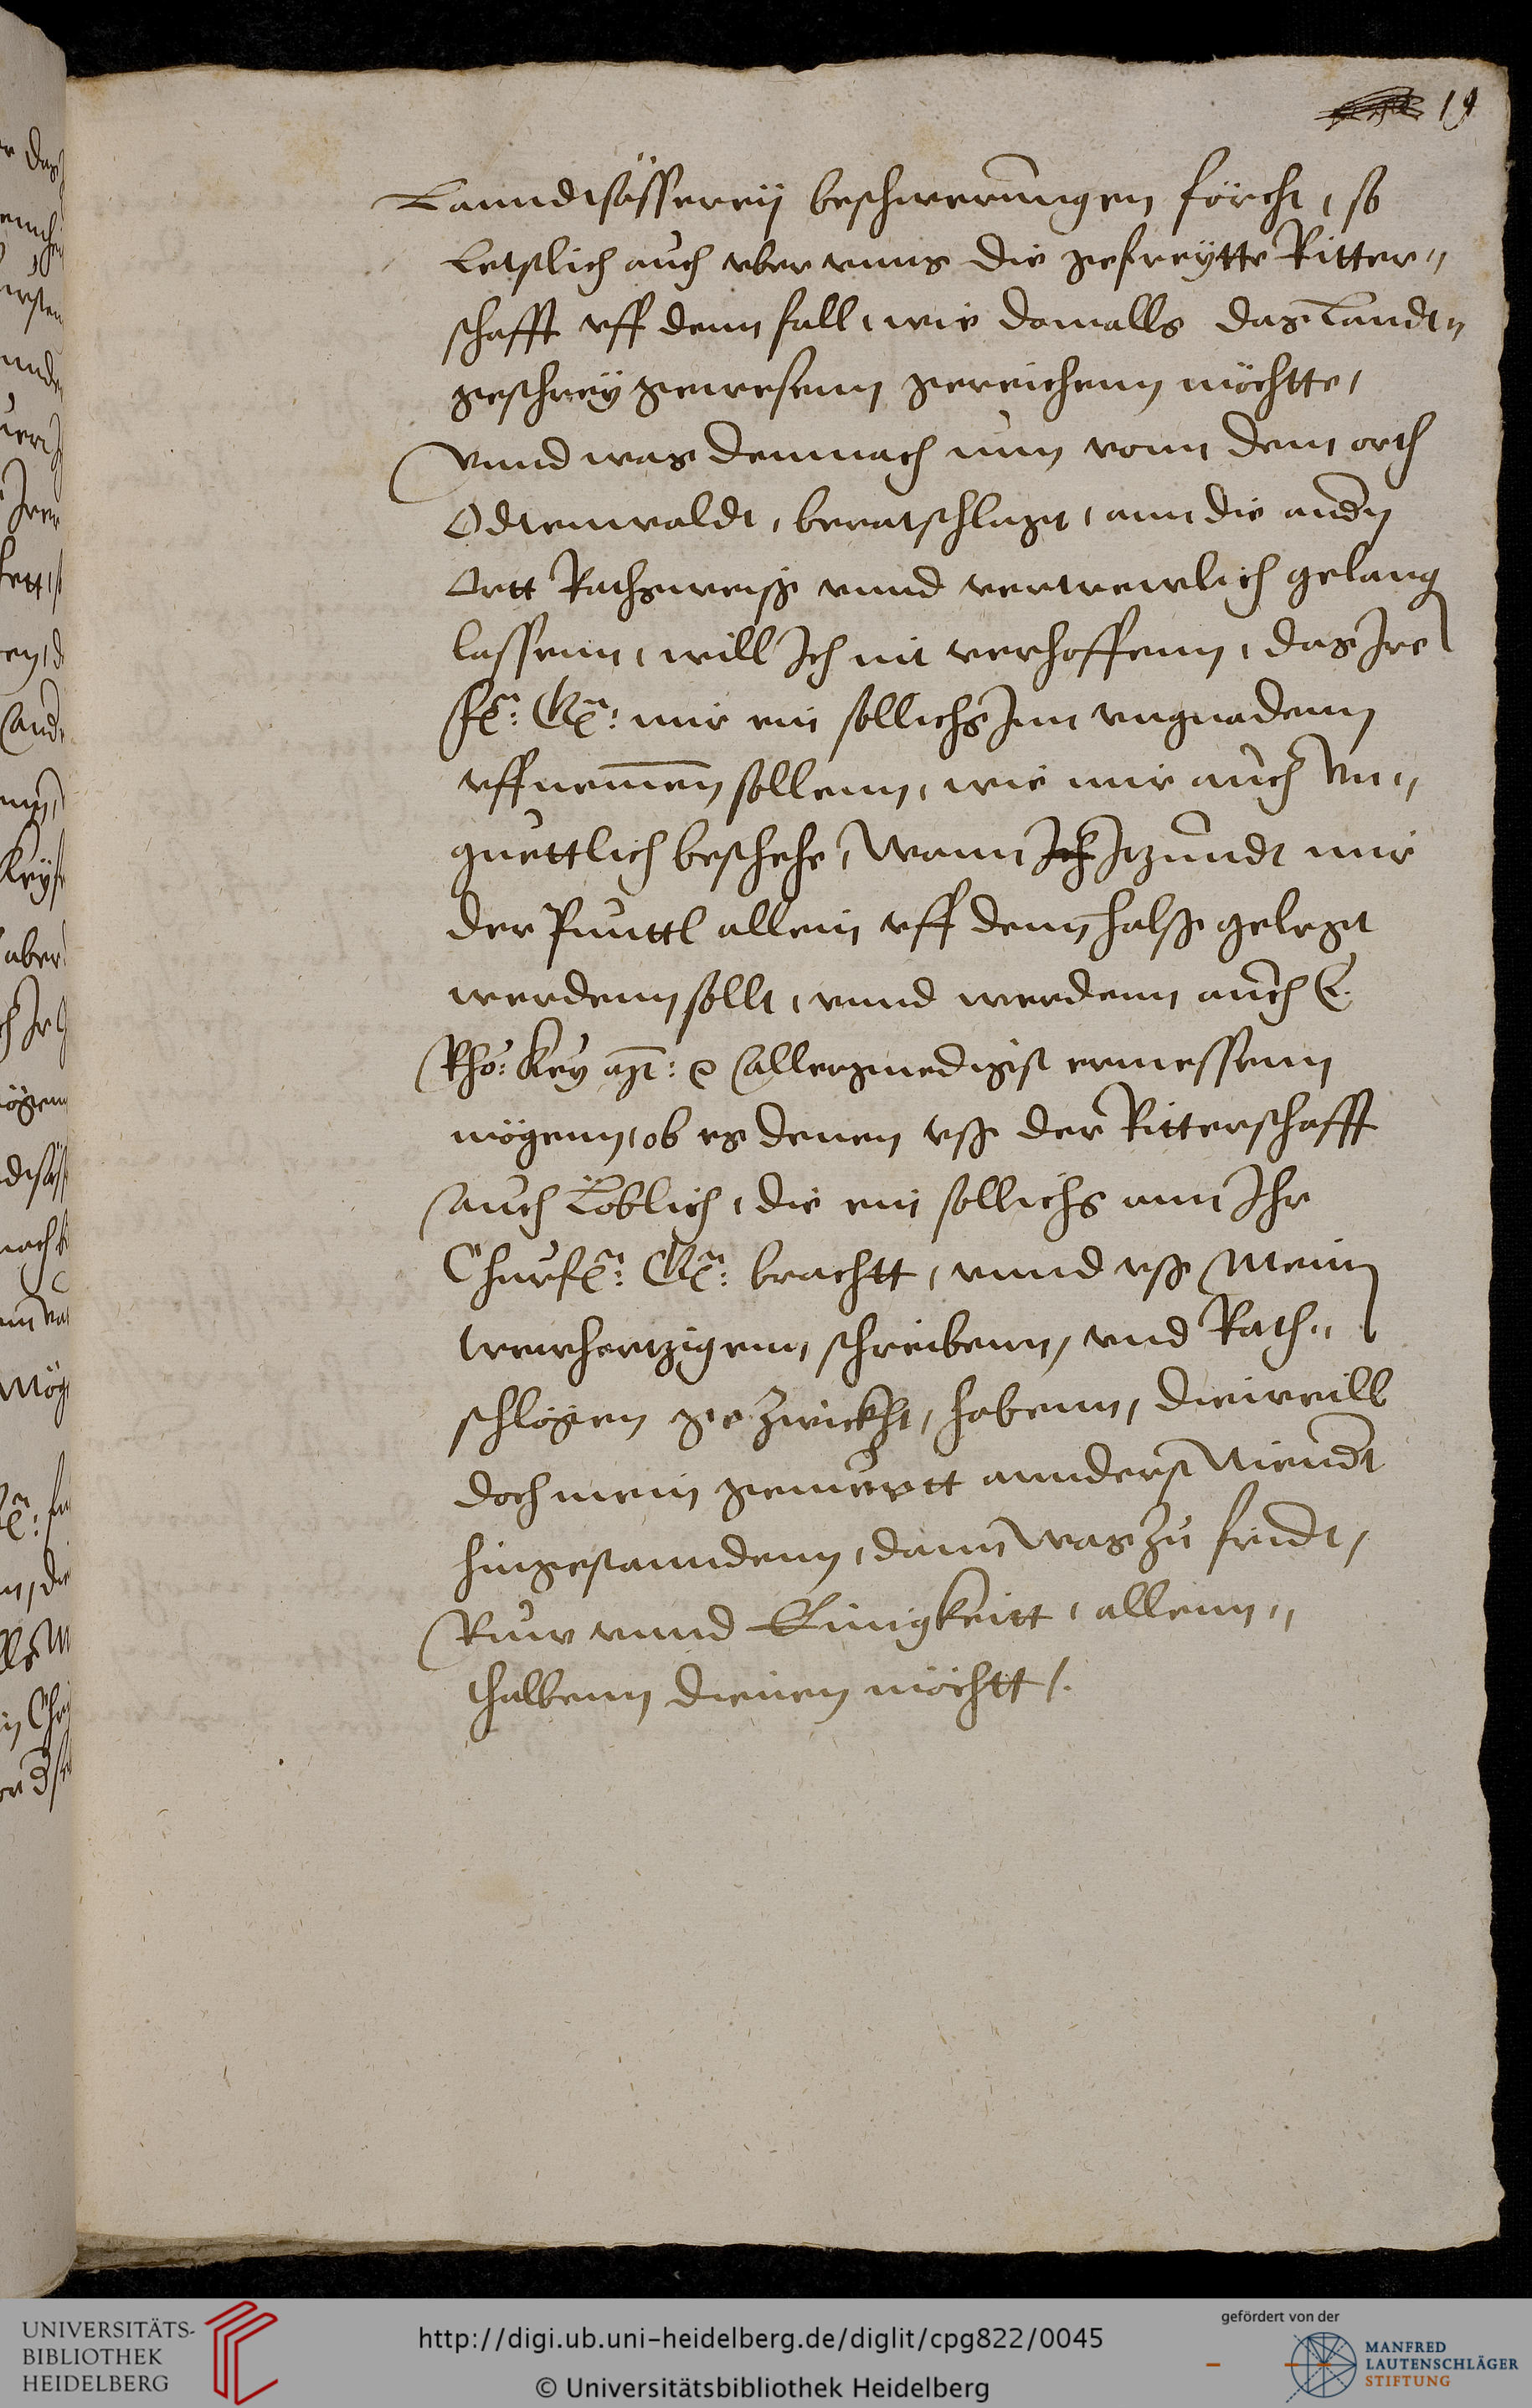 19
Lanndtsässereÿ beschwerungen förcht, so
Letstlich auch vber vnns die gefreÿtte Ritter„
schafft vff denn fall, wie damalls das Landt„
geschreÿ gewesenn gereichenn möchtte,
Vnnd was demnach nun vonn dem orth
Odtenwaldt, beratschlagt, ann die andern
Ortt Rathsweiß vnnd vertrewlich gelang
lassenn, will Ich nit verhoffenn, das Ire
Fr: Gn: mir ein sollichs Inn vngnadenn
vffnemmen sollenn, wie mir auch Vn„
guettlich beschehe, Wann Ich Itzundt mir
der Punttl allein vff denn halß gelegt
werdenn sollt, vnnd werdenn auch E.
Rhö: Key: Mt: allergnedigist ermessenn
mögenn, ob es denen vß der Ritterschafft
auch Löblich, die ein sollichs ann Ihr
Churfr: Gn: brachtt, vnnd vß Mein
trewhertzigenn schreibenn, vnd Rath„
schlögen gezwickht, habenn, dieweill
doch mein gemüett annderst Niendt
hingestanndenn, dann was zu fridt,
Ruw vnnd Einigkeitt, allenn„
thalbenn dienen möchtt /.
UNIVERSITÄTS-
BIBLIOTHEK
HEIDELBERG
http://digi.ub.uni-heidelberg.de/diglit/cpg822/0045
© Universitätsbibliothek Heidelberg
gefördert von der
MANFRED
LAUTENSCHLÄGER
STIFTUNG